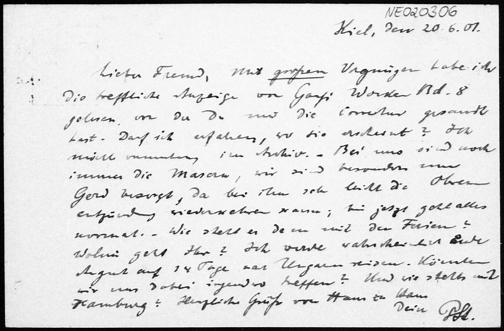 NE020306
Kiel, den 20.6.01.
Lieber Freund, Mit großem Vergnügen habe ich
die treffliche Anzeige von Gauß Werken Bd. 8
gelesen, von der Du mir die Correctur gesandt
hast. Darf ich erfahren, wo sie erscheint? Ich
möchte vermuthen, im Archiv. - Bei uns sind noch
immer die Masern, wir sind besonders um
Gerd besorgt, da bei ihm sehr leicht die Ohren
entzündung wiederkehren kann; bis jetzt geht alles
normal. - Wie steht es denn mit den Ferien?
Wohin geht Ihr? Ich werde wahrscheinlich Ende
August auf 14 Tage nach Ungarn reisen. Könnten
wir uns dabei irgendwo treffen? Und wie steht's mit
Hamburg? Herzliche Grüße von Haus zu Haus
Dein PSt.